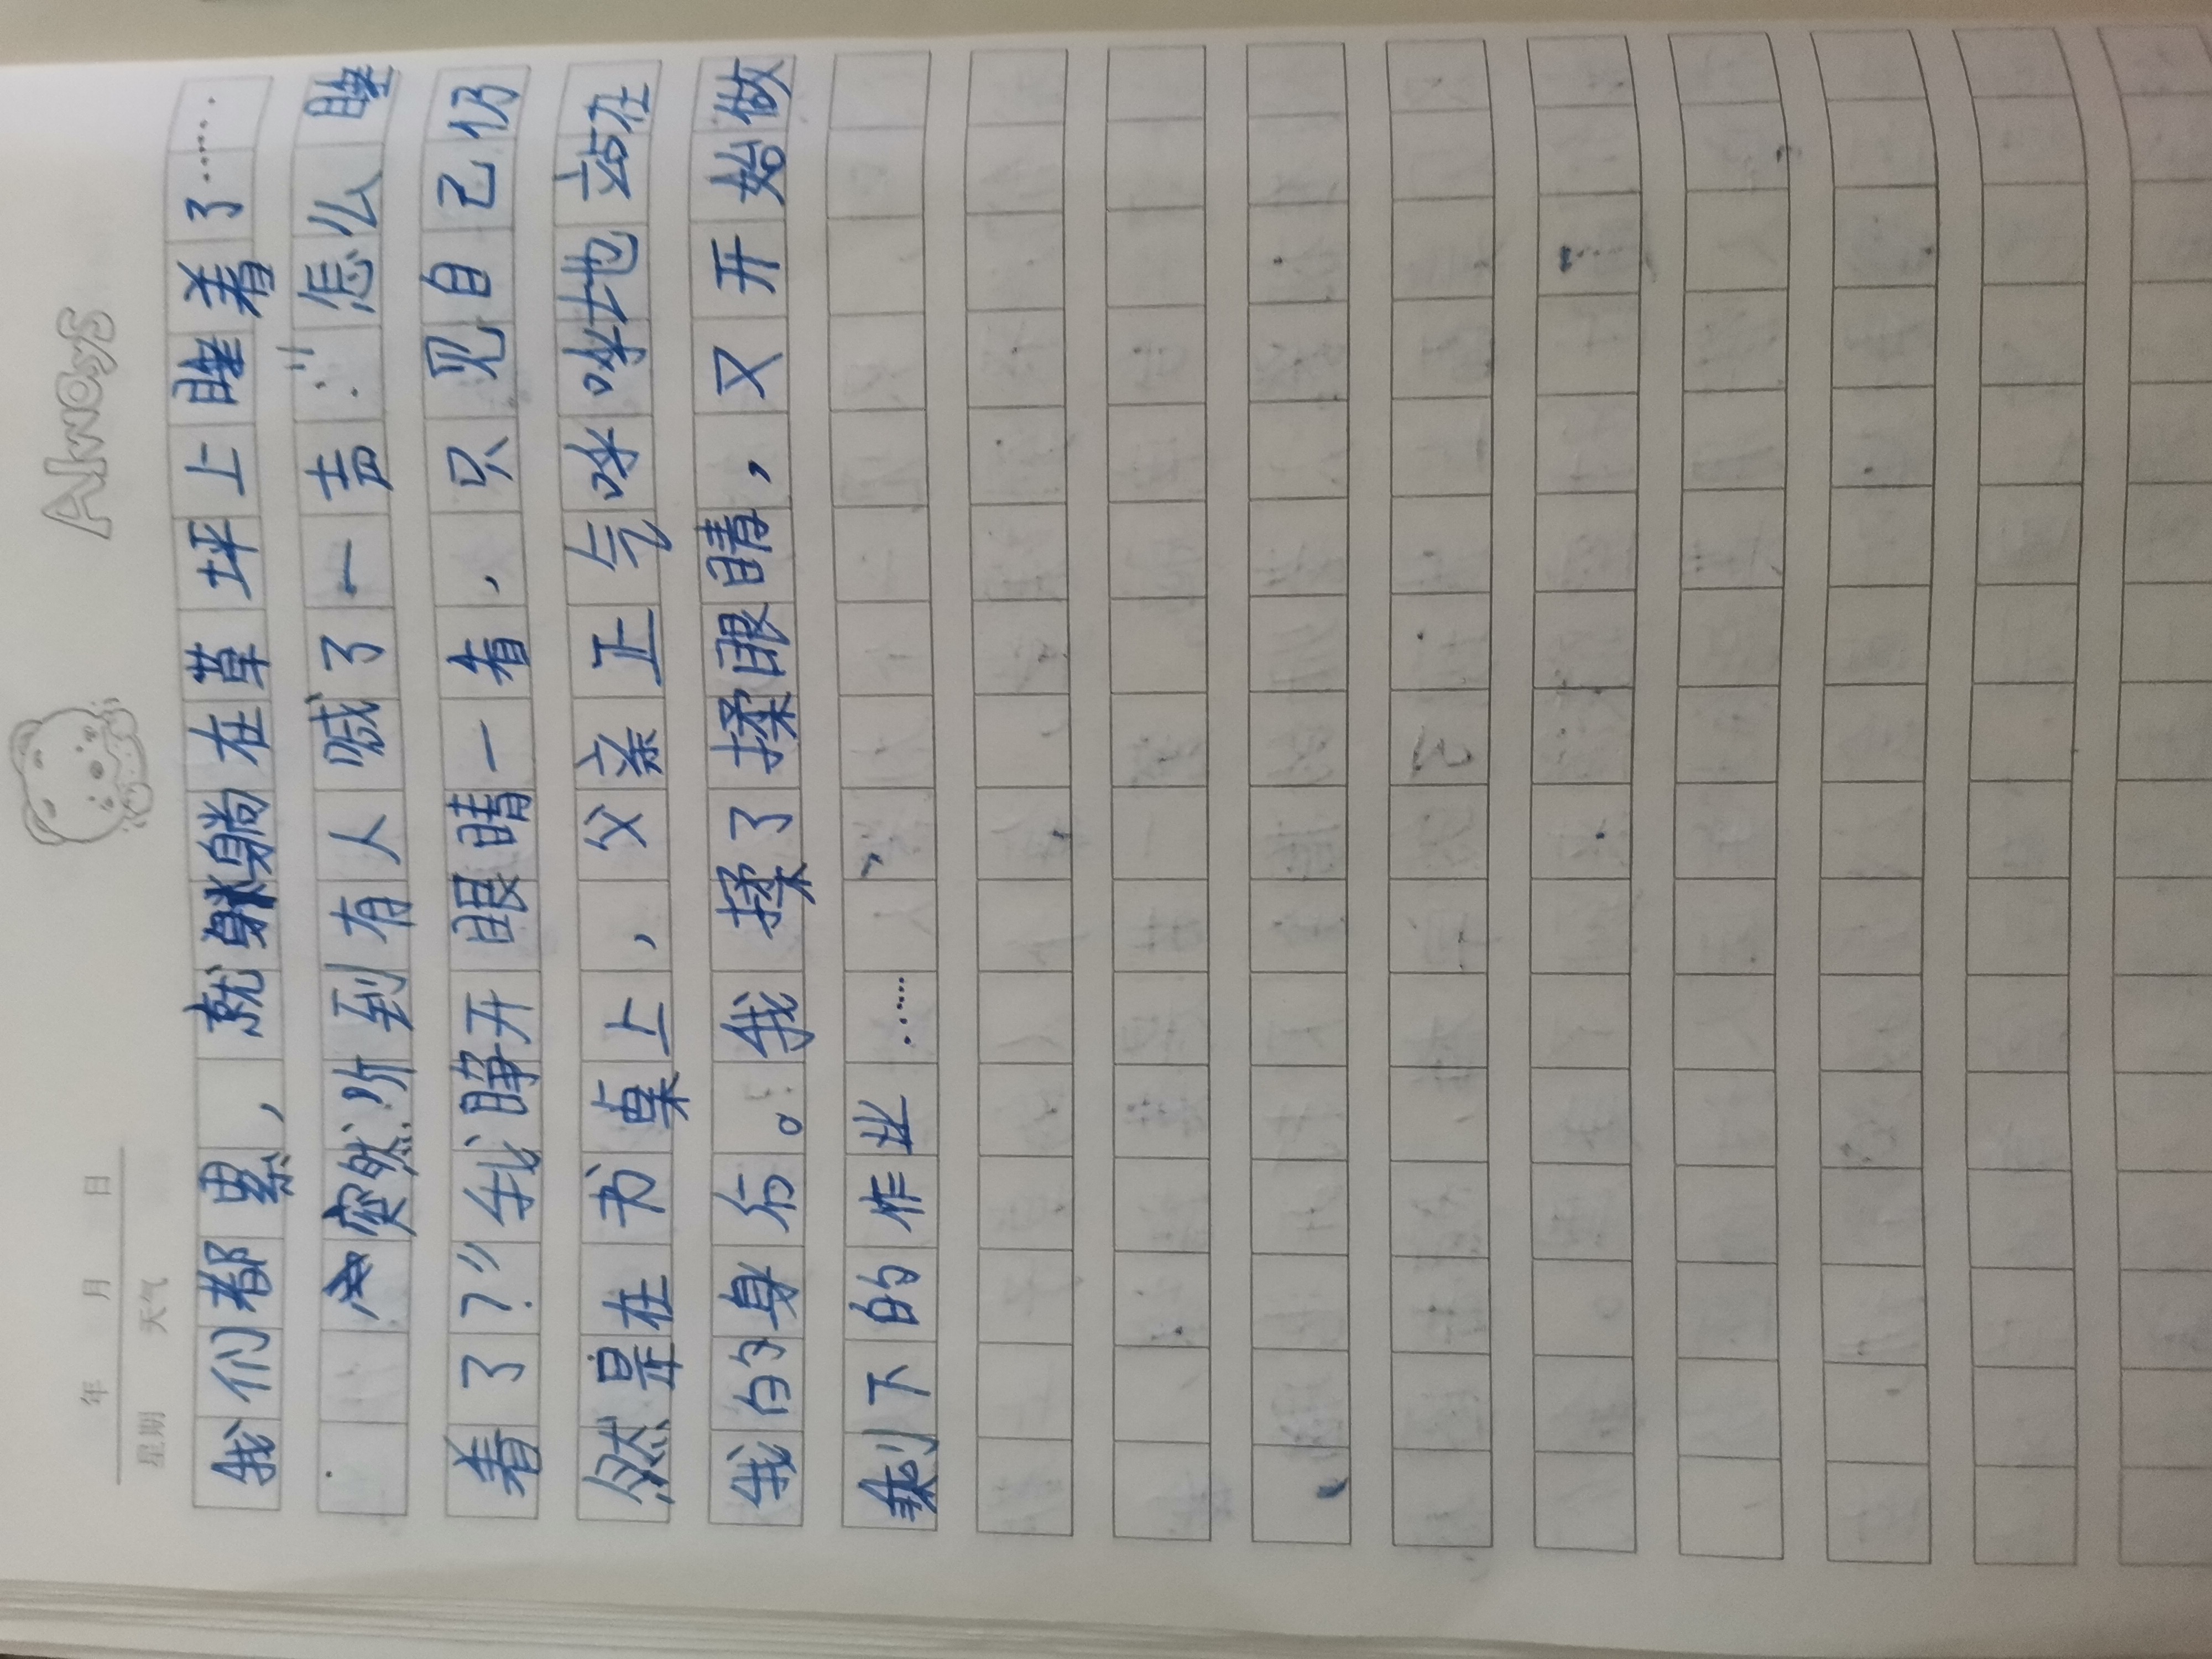 Always
年 月 日
星期 天气
我们都累，就躺在草坪上睡着了……
突然听到有人喊了一声：“怎么睡
着了？”我睁开眼睛一看，只见自己仍
然是在书桌上，父亲正气呼呼地站在
我的身后。我揉了揉眼睛，又开始做
剩下的作业……